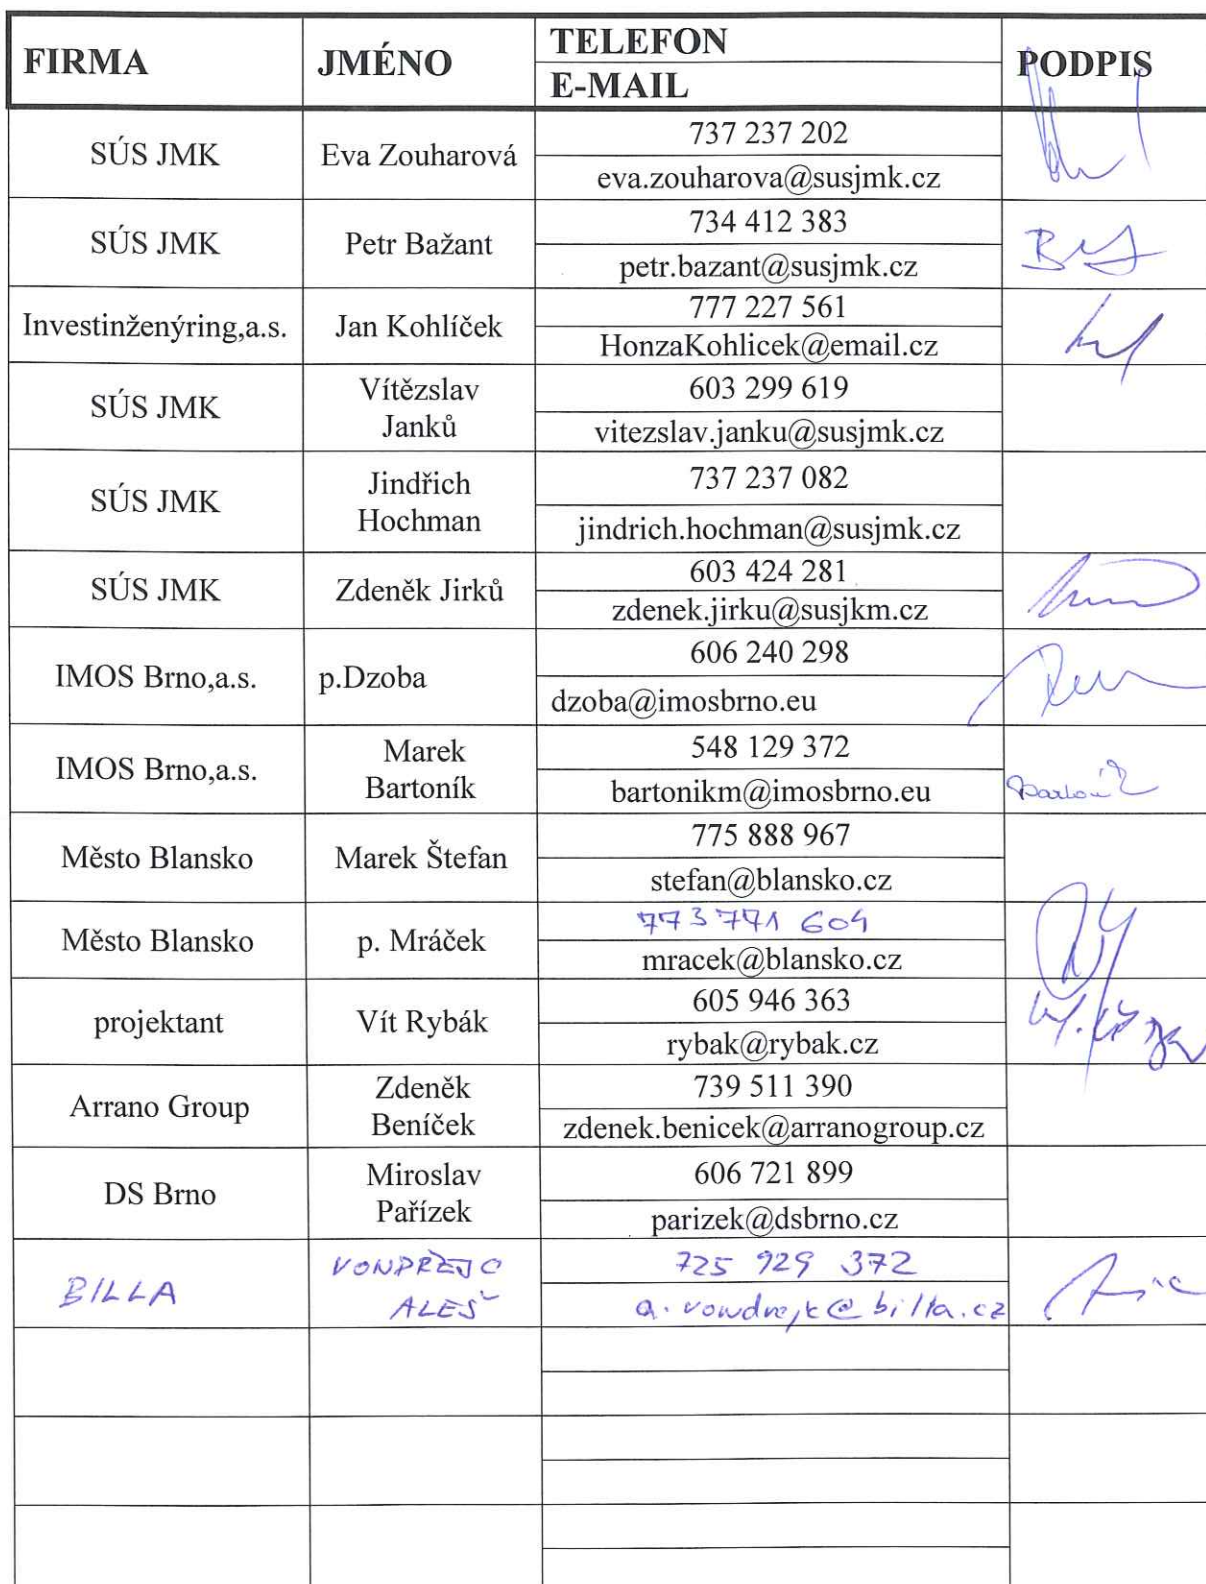 FIRMA
JMÉNO
TELEFON
E-MAIL
PODPIS
SÚS JMK
Eva Zouharová
737 237 202
eva.zouharova@susjmk.cz
SÚS JMK
Petr Bažant
734 412 383
petr.bazant@susjmk.cz
Investinženýring,a.s.
Jan Kohlíček
777 227 561
HonzaKohlicek@email.cz
SÚS JMK
Vítězslav
Janků
603 299 619
vitezslav.janku@susjmk.cz
SÚS JMK
Jindřich
Hochman
737 237 082
jindrich.hochman@susjmk.cz
SÚS JMK
Zdeněk Jirků
603 424 281
zdenek.jirku@susjkm.cz
IMOS Brno,a.s.
p.Dzoba
606 240 298
dzoba@imosbrno.eu
IMOS Brno,a.s.
Marek
Bartoník
548 129 372
bartonikm@imosbrno.eu
Město Blansko
Marek Štefan
775 888 967
stefan@blansko.cz
Město Blansko
p. Mráček
773 771 604
mracek@blansko.cz
projektant
Vít Rybák
605 946 363
rybak@rybak.cz
Arrano Group
Zdeněk
Beníček
739 511 390
zdenek.benicek@arranogroup.cz
DS Brno
Miroslav
Pařízek
606 721 899
parizek@dsbrno.cz
BILLA
ALEŠ
725 929 372